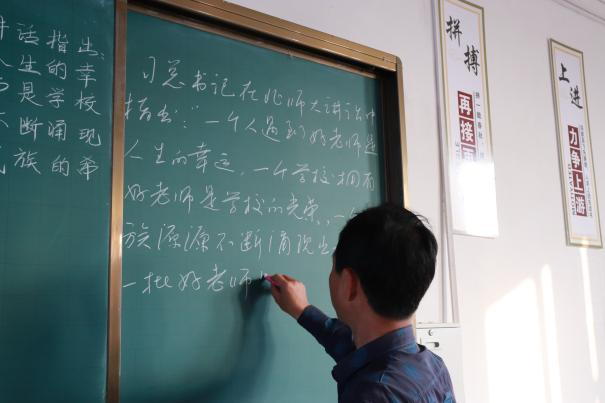 话指出:
人生的幸
是学校
不断涌现
民族的希
习总书记在北师大讲话中
指出:"一个人遇到好老师是
人生的幸运,一个学校拥有
好老师是学校的光荣,一
族源源不断涌现出
一批好老师
拼搏
再接再
上进
力争上游